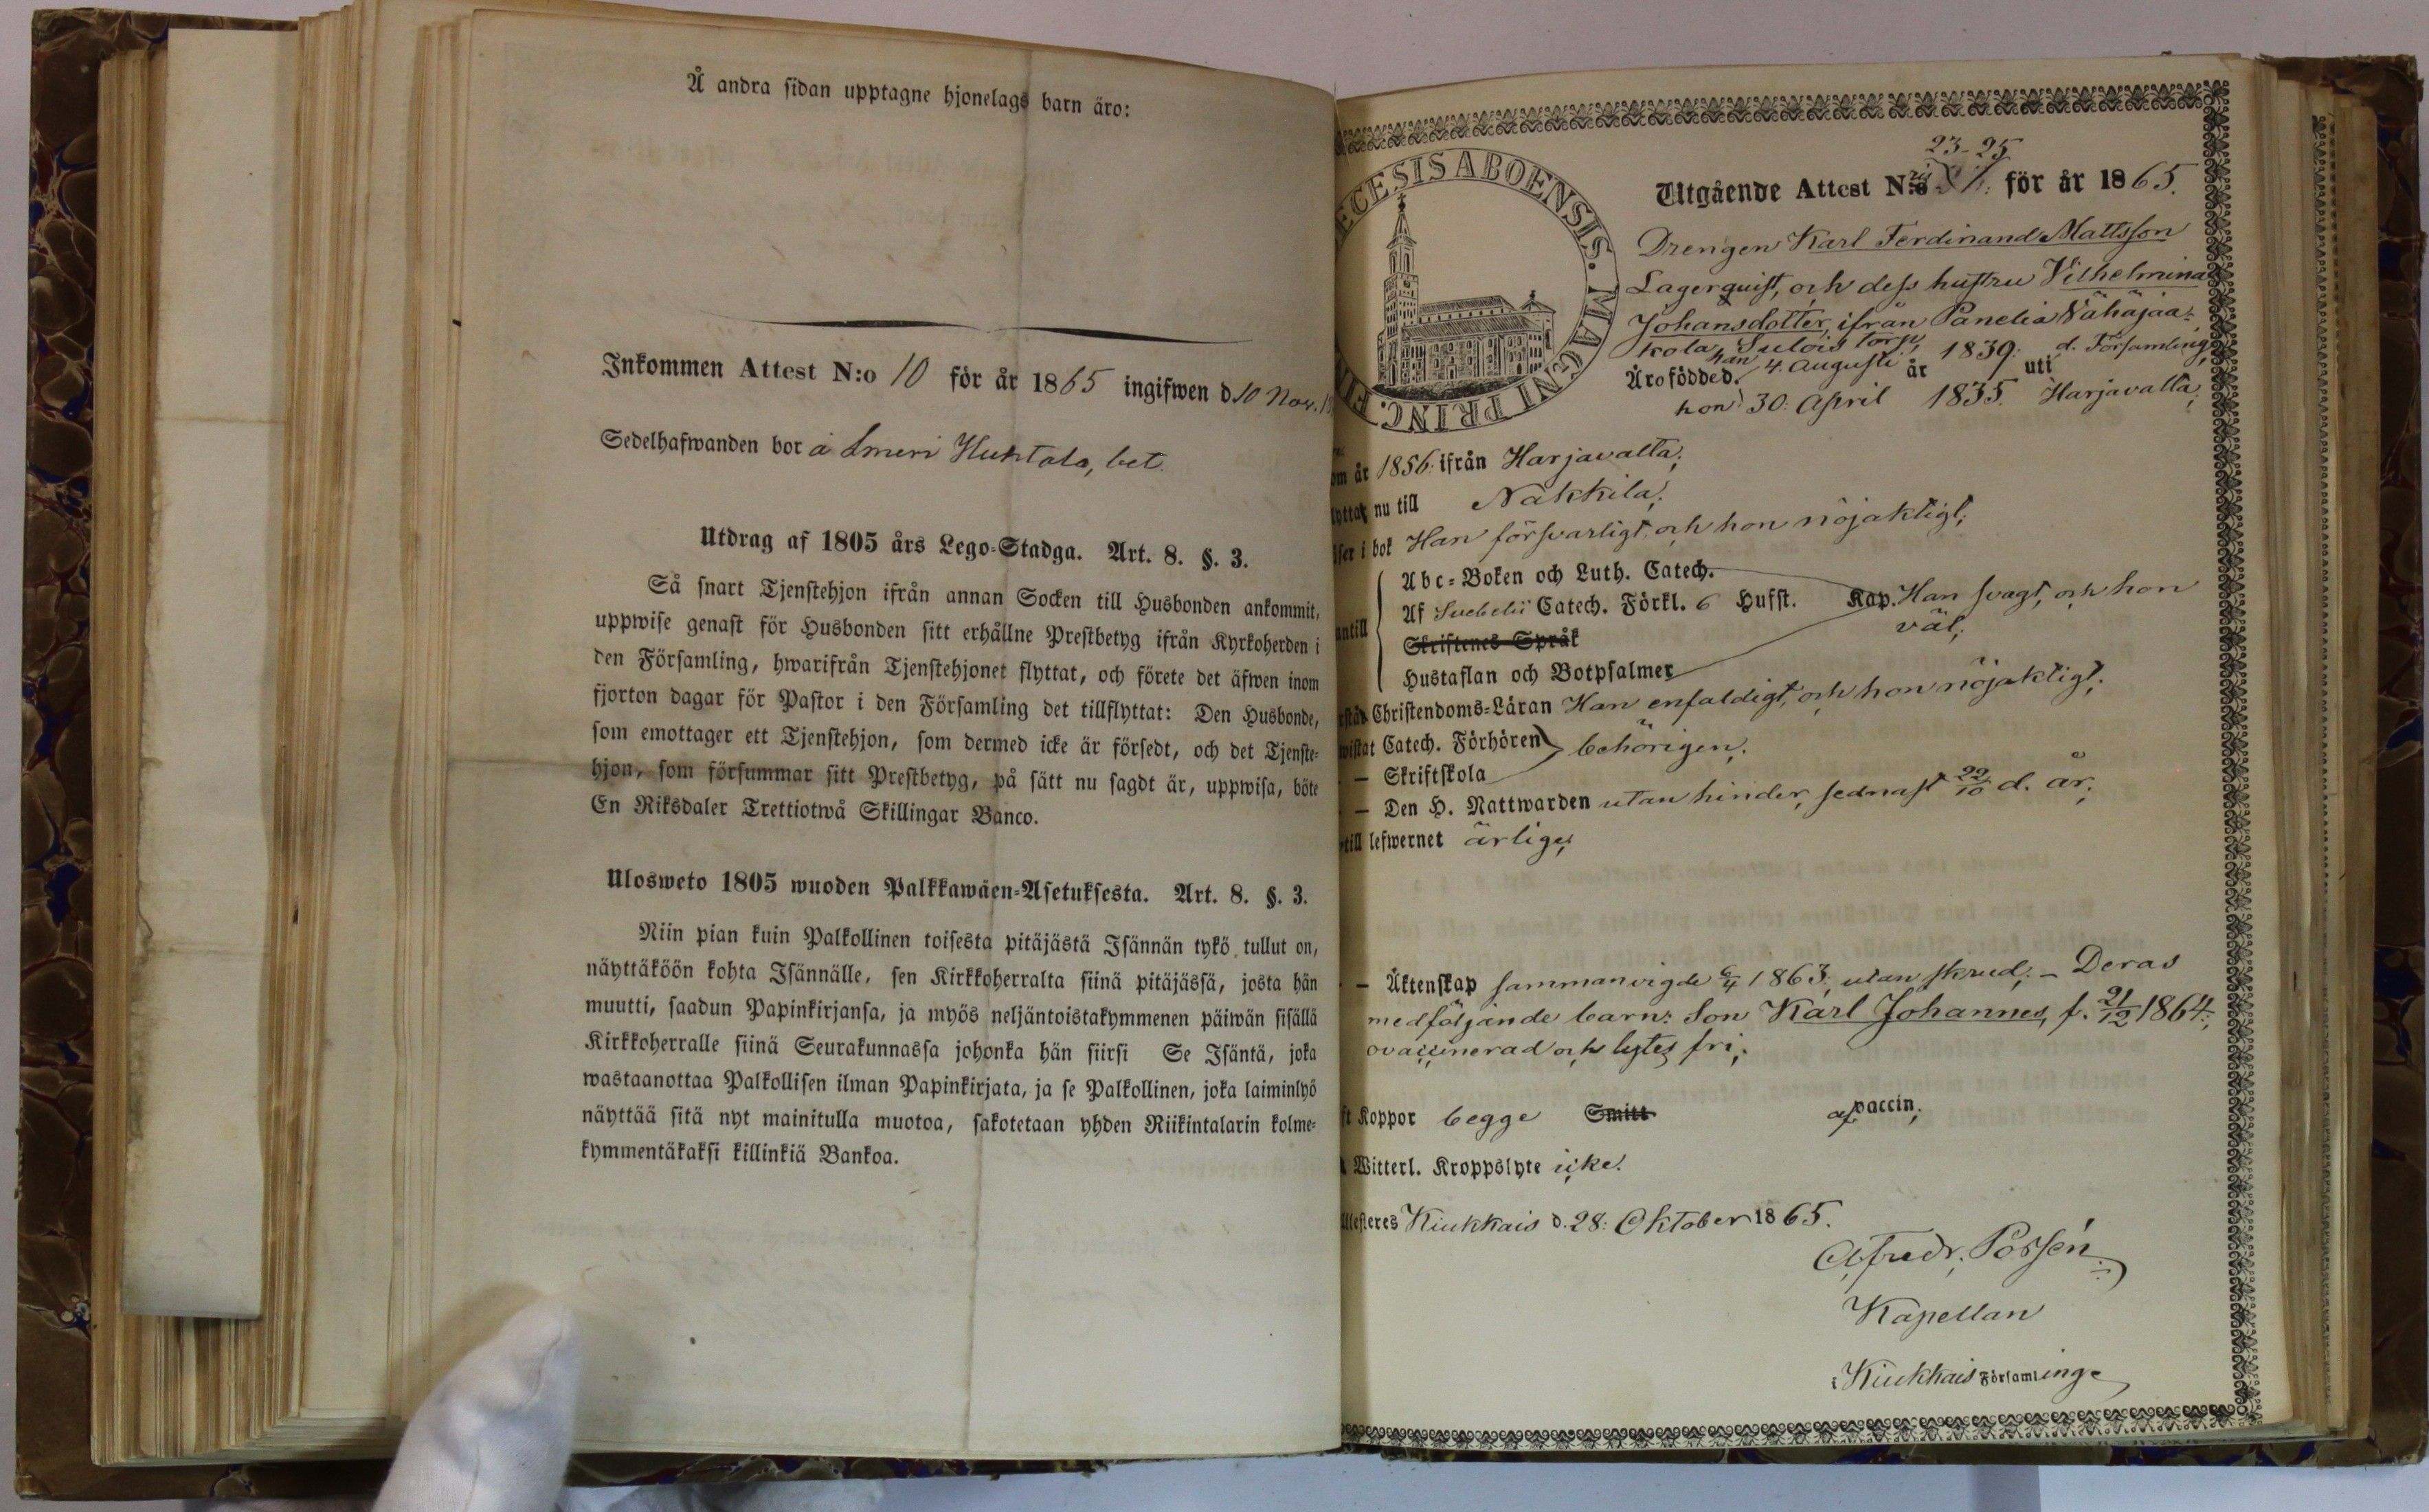 Å andra sidan upptagne hjonelags barn äro:
Inkommen Attest N:o 10 för år 1865 ingifwen d. 10 Nov.
Sedelhafwanden bor å
Utdrag af 1805 års Lego-Stadga. Art. 8. §. 3.
Så snart Tjenstehjon ifrån annan Socken till Husbonden ankommit,
uppwise genast för Husbonden sitt erhållne Prestbetyg ifrån Kyrkoherden i
den Församling, hwarifrån Tjenstehjonet flyttat, och förete det äfwen inom
fjorton dagar för Pastor i den Församling det tillflyttat: Den Husbonde,
som emottager ett Tjenstehjon, som dermed icke är försedt, och det Tjenste-
hjon, som försummar sitt Prestbetyg, på sätt nu sagdt är, uppwisa, böte
En Riksdaler Trettiotwå Skillingar Banco.
Ulosweto 1805 wuoden Palkkawäen-Asetuksesta. Art. 8. §. 3.
Niin pian kuin Palkollinen toisesta pitäjästä Isännän tykö tullut on,
näyttäköön kohta Isännälle, sen Kirkkoherralta siinä pitäjässä, josta hän
muutti, saadun Papinkirjansa, ja myös neljäntoistakymmenen päiwän sisällä
Kirkkoherralle siinä Seurakunnassa johonka hän siirsi Se Isäntä, joka
wastaanottaa Palkollisen ilman Papinkirjata, ja se Palkollinen, joka laiminlyö
näyttää sitä nyt mainitulla muotoa, sakotetaan yhden Riikintalarin kolme-
kymmentäkaksi killinkiä Bankoa.
ECESIS ABOENSIS. MAGNI PRINC. FIN
23-25
Utgående Attest N:o för år 1865.
Drengen Karl Ferdinand Mattsson
Lagerquist, och dess hustru Vilhelmina
Johansdotter, ifrån Panelia Vähäjaa-
kola, Sulois torp,
Äro födde d. han 4. Augusti år 1839. uti d. Församling,
hon 30: April 1835. Harjavalta,
om år 1856: ifrån Harjavalta,
yttat nu till Nakkila,
ser i bok Han försvarligt, och hon nöjaktigt,
antill
Abc-Boken och Luth. Catech.
Af Svebelii Catech. Förkl. 6 Hufst. Kap. Han svagt, och hon
väl,
Skriftenes Språk
Hustaflan och Botpsalmer
rstår Christendoms-Läran Han enfaldigt, och hon nöjaktigt,
wistat Catech. Förhören behörigen,
— Skriftskola
— Den H. Nattwarden utan hinder, sednast 22/10 d. år,
till lefwernet ärlige,
— Äktenskap sammanvigde 6/4 1863, utan skrud, - Deras
medföljande barn: Son Karl Johannes, f. 21/12 1864,
ovaccinerad och lytes fri,
ft Koppor begge Smitt af vaccin,
Witterl. Kroppslyte icke.
ttesteres Kiukkais d. 28: Oktober 1865.
Alfredr. Possén
Kapellan
i Kiukkais Församlinge